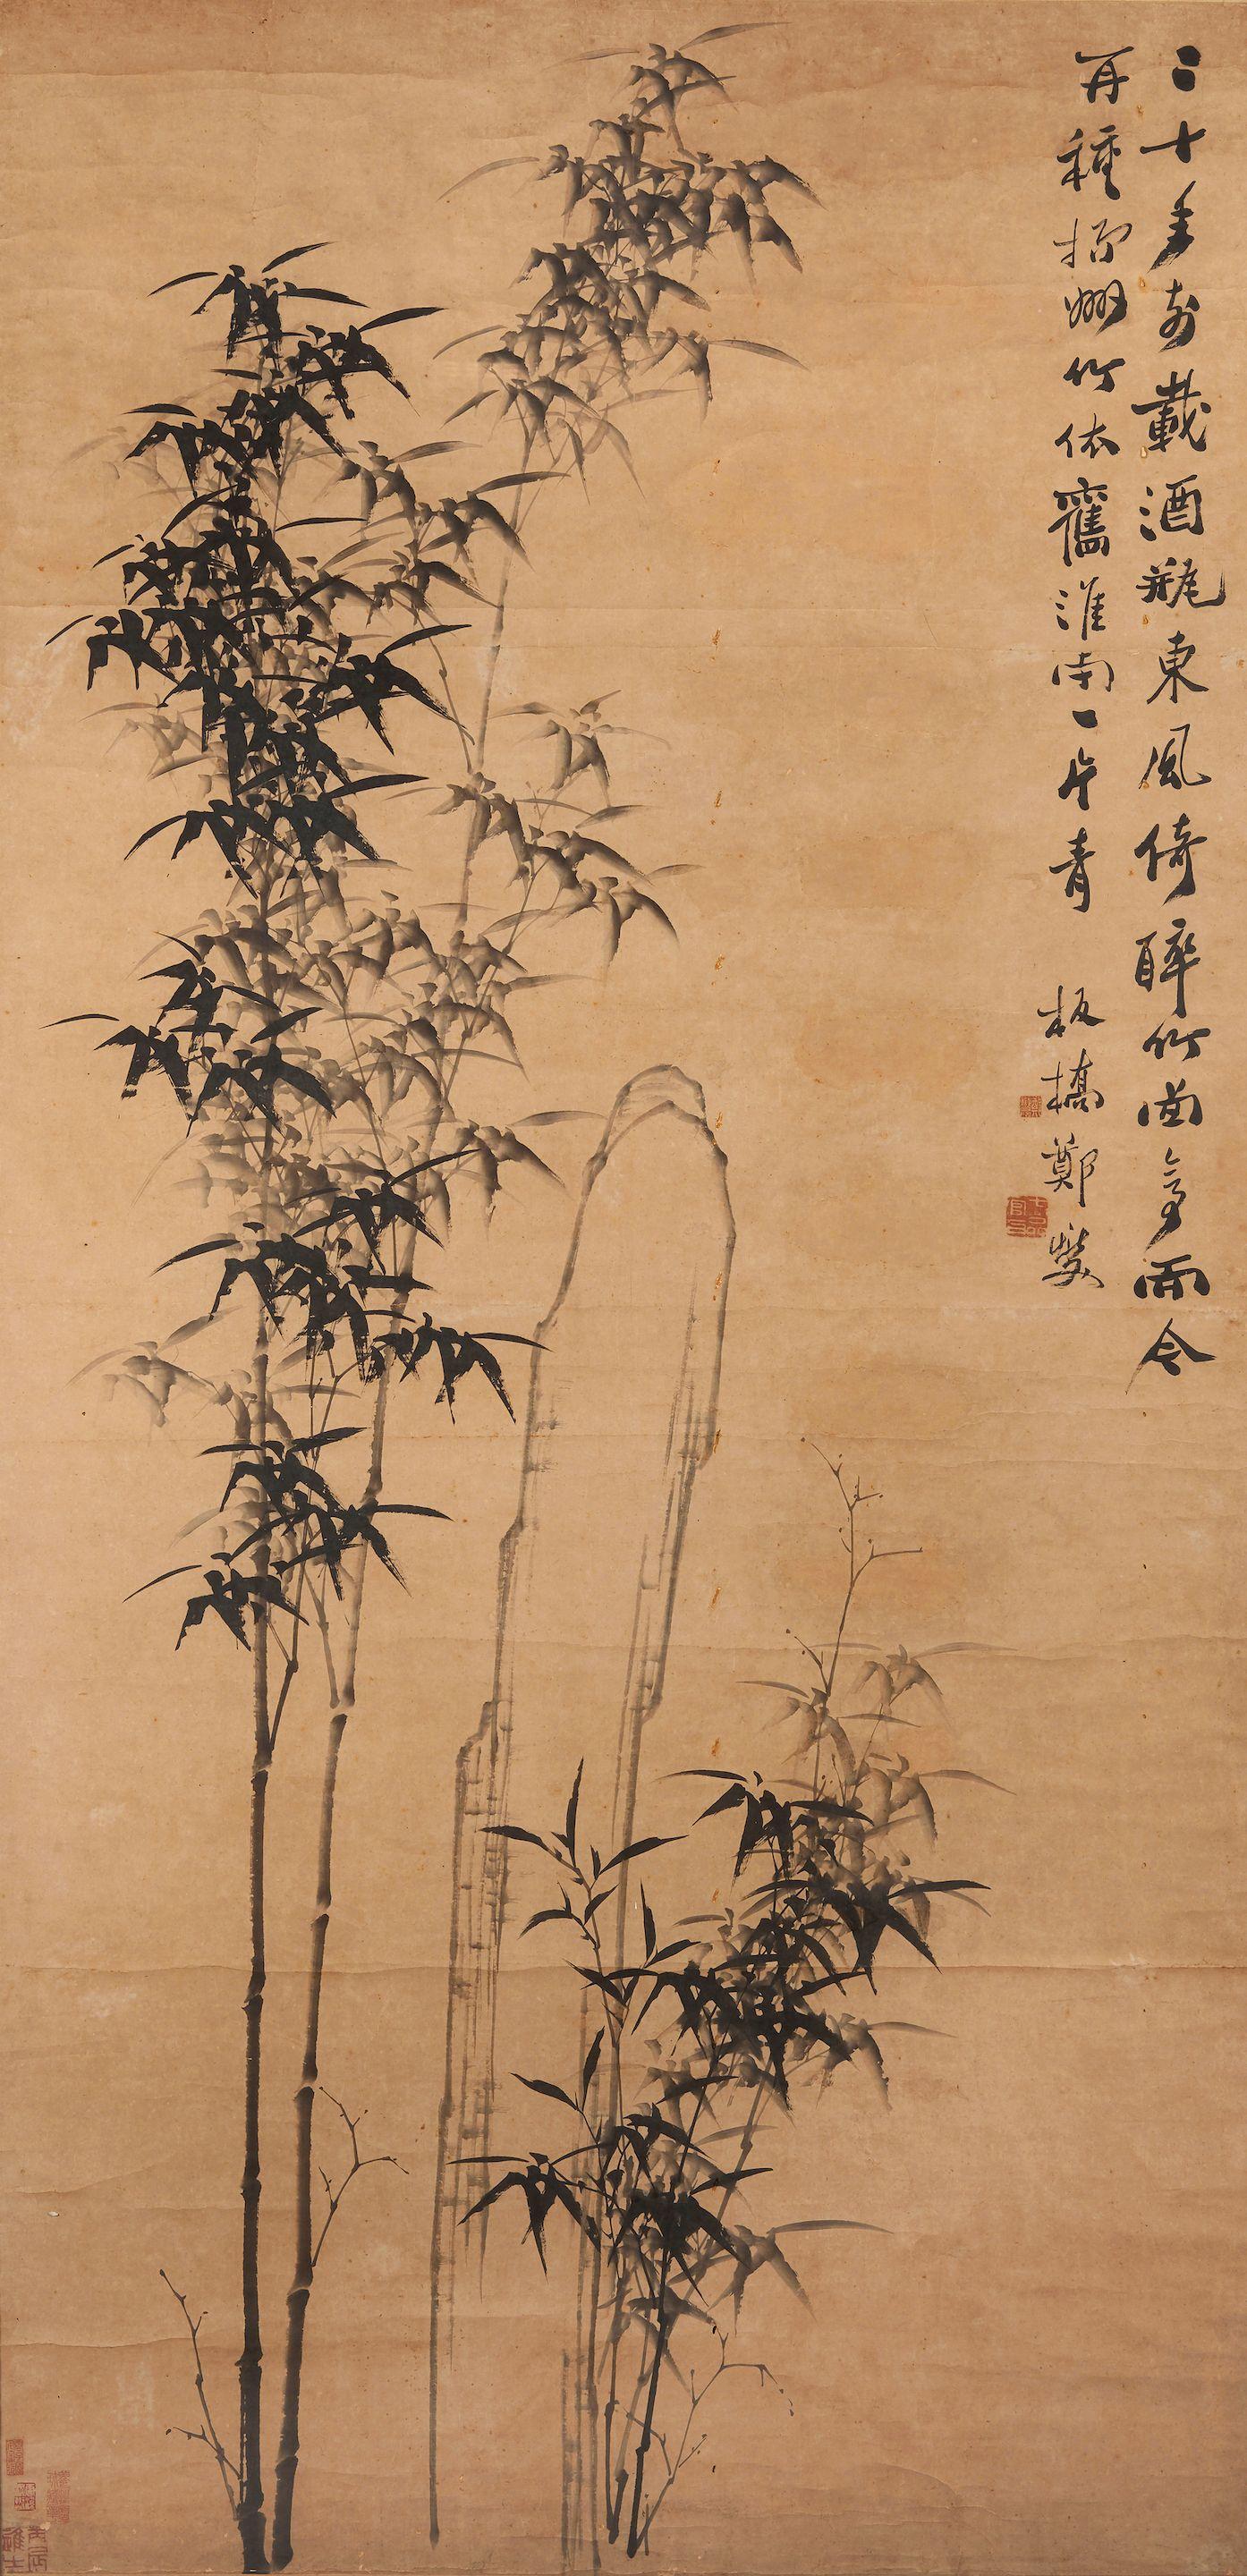 二十年前載酒瓶東風倚醉竹西亭而今
再種揚州竹依舊淮南一片青
板橋鄭燮
七品官耳
丙辰進士